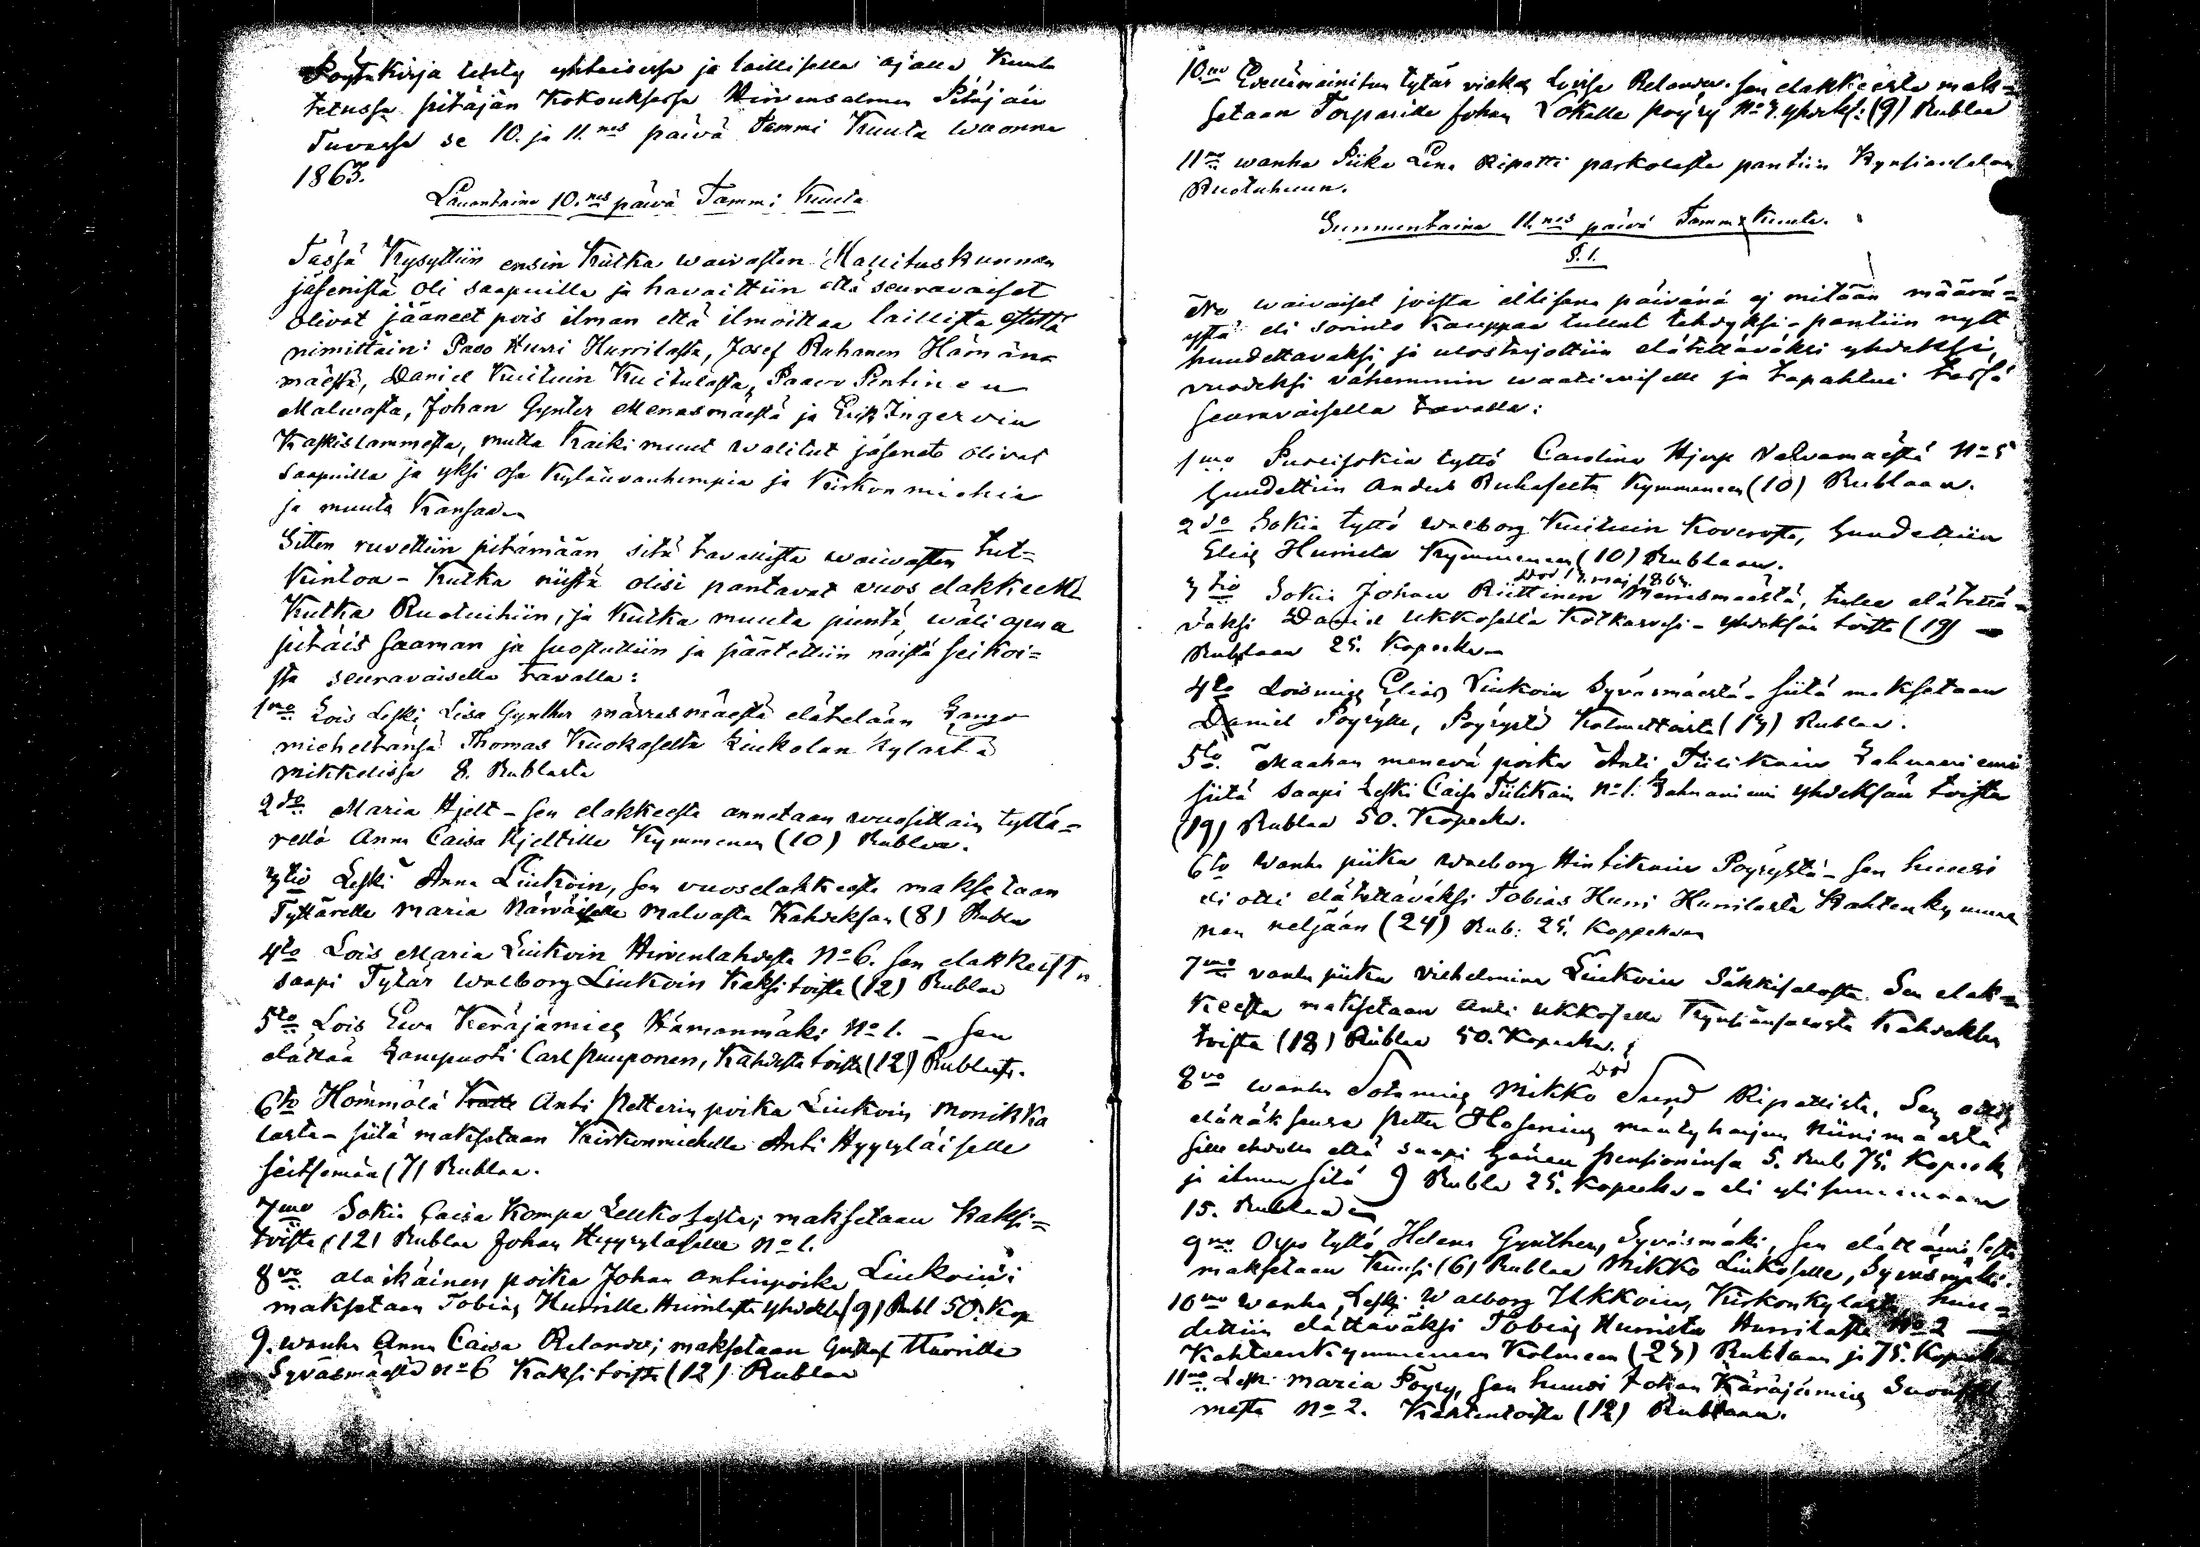 Pöytäkirja tehty yhteisessä ja laillisella ajalla Kuulu
tetussa pitäjän Kokouksessa Hirvensalmen Pitäjän
Tuvassa se 10. ja 11.nes päivä Tammi Kuuta Wuonna
1863.
Lauantaina 10.nes päivä Tammi Kuuta
Tässä Kysyttiin ensin Kutka waivasten Hallituskunnan
jäsenistä oli saapuilla ja havaittiin että seuravaiset
olivat jääneet pois ilman että ilmoittaa laillista estettä
nimittäin: Pavo Hurri Hurrilasta, Josef Ruhanen Hämän-
mäestä, Daniel Kuituin Kuitulasta, Paavo Pentinen
Malvasta, Johan Gynter Menasmäestä ja Erik Ingervin
Kaskislammesta, mutta Kaiki muut walitut jäsenet olivat
saapuilla ja yksi osa Kylänvanhempia ja Kirkonmiehia
ja muuta Kansaa.
Sitten ruvettiin pitämään sitä tavallista waivasten tut-
kintoa - Kutka niistä olisi pantavat vuos elakkeelle
Kutka Ruotuihiin, ja Kutka muuta pientä wäliapua
pitäis saaman ja suostuttiin ja päätettiin näistä seikoi-
sta seuravaisella tavalla:
1mo Lois Leski Lisa Gynther märrasmäestä elätetään Lango
mieheltänsä Thomas Kuokoselta Liukolan Kylästä
mikkelissä 8. Rublasta
2do Maria Hjelt - sen elakkeesta annetaan wuosittain tyttä-
rellä Anna Caisa Hjeltille Kymmenen (10) Rublaa.
3tio Leski Anna Liukoin, sen vuoselakkeesta maksetaan
Tyttärelle Maria Närväiselle Malvasta Kahdeksan (8) Rubla
4to Lois Maria Liukoin Hirvenlahdesta No 6. sen elakkeista
saapi Tytär Walborg Liukoin Kaksitoista (12) Rublaa
5to Lois Ewa Keräjämies Hämänmäki No 1. - sen
elättää Lampuoti Carl Puuponen, Kahdestatoista (12) Rublasta.
6to Hömmölä Anti Petterin poika Liukoin Monikka
lasta - siitä maksetaan Kirkonmiehelle Anti Hyyryläiselle
seitsemän (7) Rublaa.
7mo Sokia Caisa Kompa Leukosasta; maksetaan Kaksi-
toista (12) Rublaa Johan Hyyryläselle No 1.
8vo alaikäinen poika Johan Antinpoika Liukoin;
maksetaan Tobias Hurrille Hurrilasta yhdeksen (9) Rubl 50. Kop
9. wanha Anna Caisa Relander; maksetaan Gustaf Hurrille
Syväsmäestä No 6 Kaksitoista (12) Rublaa
10mo Edellämainitun tytär viakas Lovisa Relander. sen elakkeesta mak-
setaan Torparille Johan Vokalle Pöyry No 3. yhdeks: (9) Rublaa
11mo wanha Piika Lena Ripatti parkolasta pantiin Kynsiaslaan
Ruotuhuun.
Sunnuntaina 11.nes päivä Tammi Kuuta.
§. 1.
Ne waivaiset joista eilisenä päivänä ej mitään määrä-
ystä eli sovinto Kauppaa tullut tehdyksi - pantiin nytt
huudettavaksi ja ulostarjottiin elätettäväksi yhdeksi
vuodeksi vähemmin waativaiselle ja tapahtui tässä
seuravaisella tavalla:
1mo Puolisokia tyttö Carolina Hjerp Vahvamäestä No 5
huudettiin Anders Ruhaselta Kymmeneen (10) Rublaan.
2do Sokia tyttö Walborg Kuituin Koverosta, huudettiin
Elias Hurrilda Kymmeneen (10) Rublaan.
död 17 maj 1864.
3tio Sokia Johan Riittinen Menasmäestä, tulee elätettä-
väksi Daniel Ukkoselta Kotkasvesi - yhdeksän toista (19)
Rublaan 25. Kopeeka.
4to Loismies Elias Liukoin Syväsmäestä - siitä maksetaan
Daniel Pöyrylle, Pöyrystä Kolmettoista (13) Rublaa.
5to Maahan menevä poika Anti Tiilikain Lahnaniemi
siitä saapi Leski Caisa Tiilikain No 1. Lahnaniemi yhdeksän toista
(19) Rublaa 50. Kopeeka.
6to Wanha piika Walborg Hintikain Pöyrystä - sen huusi
eli otti elätettäväksi Tobias Hurri Hurrilasta Kahtenkymme
nen neljään (24) Rub: 25. Koppekaan
7mo vanha piika Vilhelmina Liukoin Säkkisalosta. Sen elak-
keesta maksetaan Anti Ukkoselle Kynsiänsalosta Kahdeksan
toista (18) Rublaa 50. Kopeeka.
död
8vo wanha Sotamies Mikko Sund Ripattista, Sen otti
eläkäksensä Petter Hosenius mäntyharjun Niinimäestä
sille ehdolla että saapi hänen pensioninsa 5. Rub 75. Kopeek
ja ilman sitä 9 Rubla 25. Kopeeka - eli ylisummaan
15. Rublaa
9no Orpo tyttö Helena Gynther, Syväsmäki, sen elättämisestä
maksetaan Kuusi (6) Rublaa Mikko Liukoselle, Syväsmäki.
10mo Wanha Leski Walborg Ukkoin, Kirkonkylästä, huu-
dettiin elättäväksi Tobias Hurrista Hurrilasta No 2
Kahteenkymmeneen Kolmeen (23) Rublaan ja 75. Kopeeka
11mo Leski Maria Pöyry, sen huusi Johan Käräjämies Suonsal
mesta No 2. Kahteentoista (12) Rublaan.